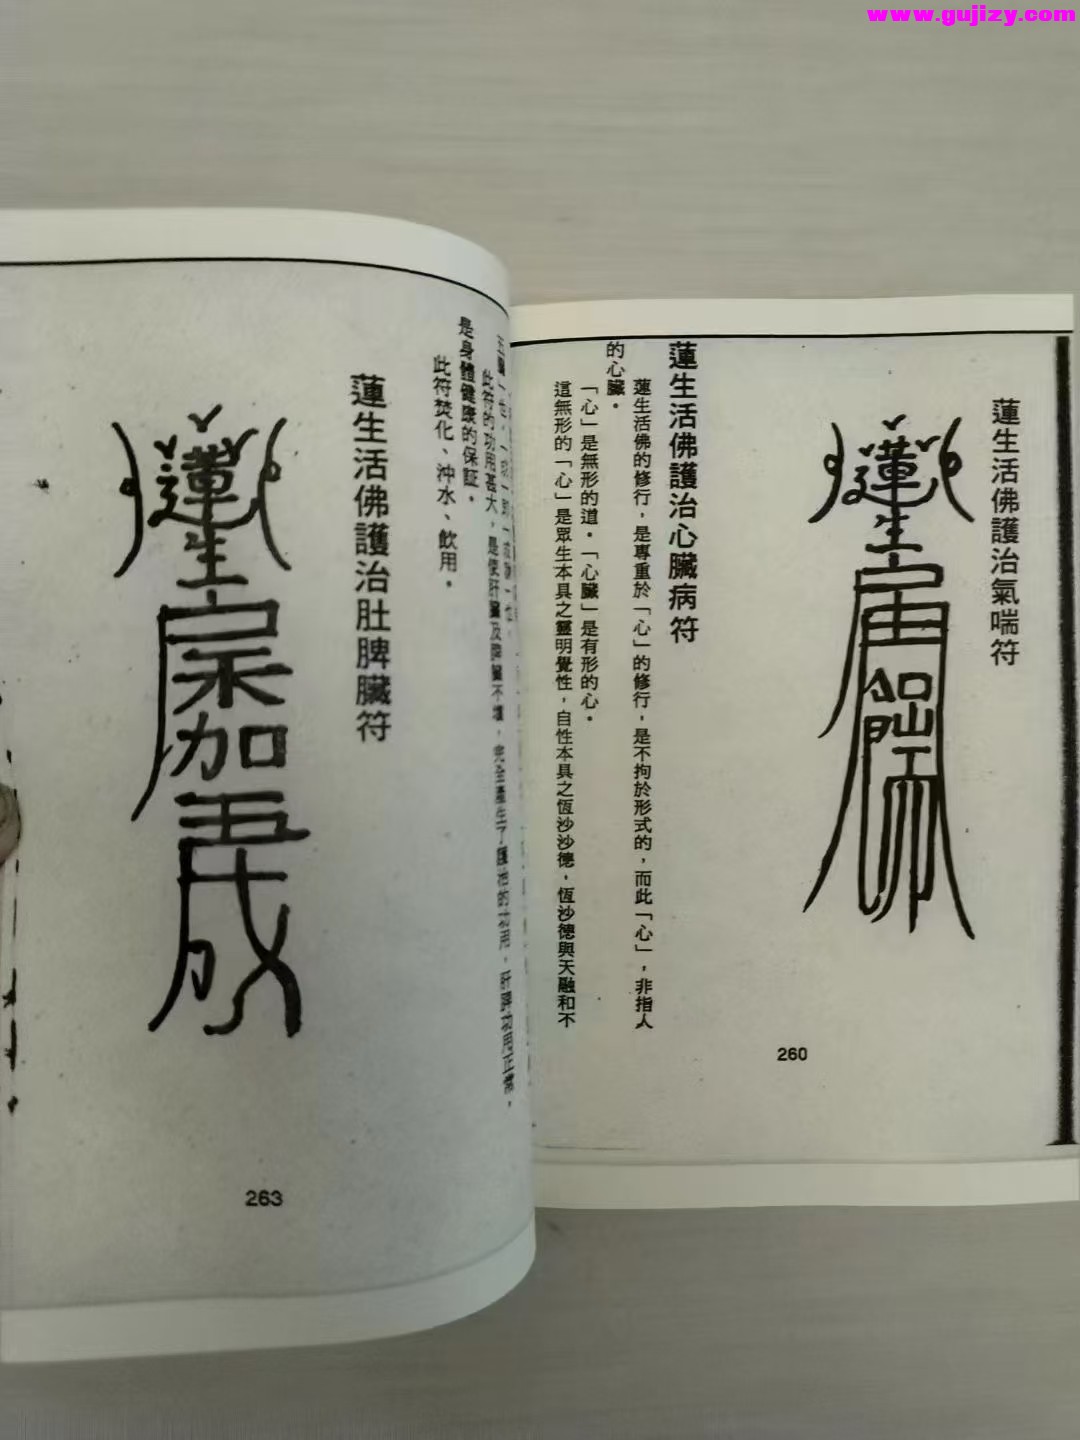 www.gujizy.com
蓮生活佛護治氣喘符
260
蓮生活佛護治心臟病符
蓮生活佛的修行，是專重於「心」的修行，是不拘於形式的，而此「心」，非指人
的心臟。
「心」是無形的道。「心臟」是有形的心。
這無形的「心」是眾生本具之靈明覺性，自性本具之恆沙沙德，恆沙德與天融和不
此符的功用甚大，是使肝臟及脾臟不壞，完全產生了護治的功用，肝脾功用正常，
是身體健康的保証。
此符焚化、沖水、飲用。
蓮生活佛護治肚脾臟符
263